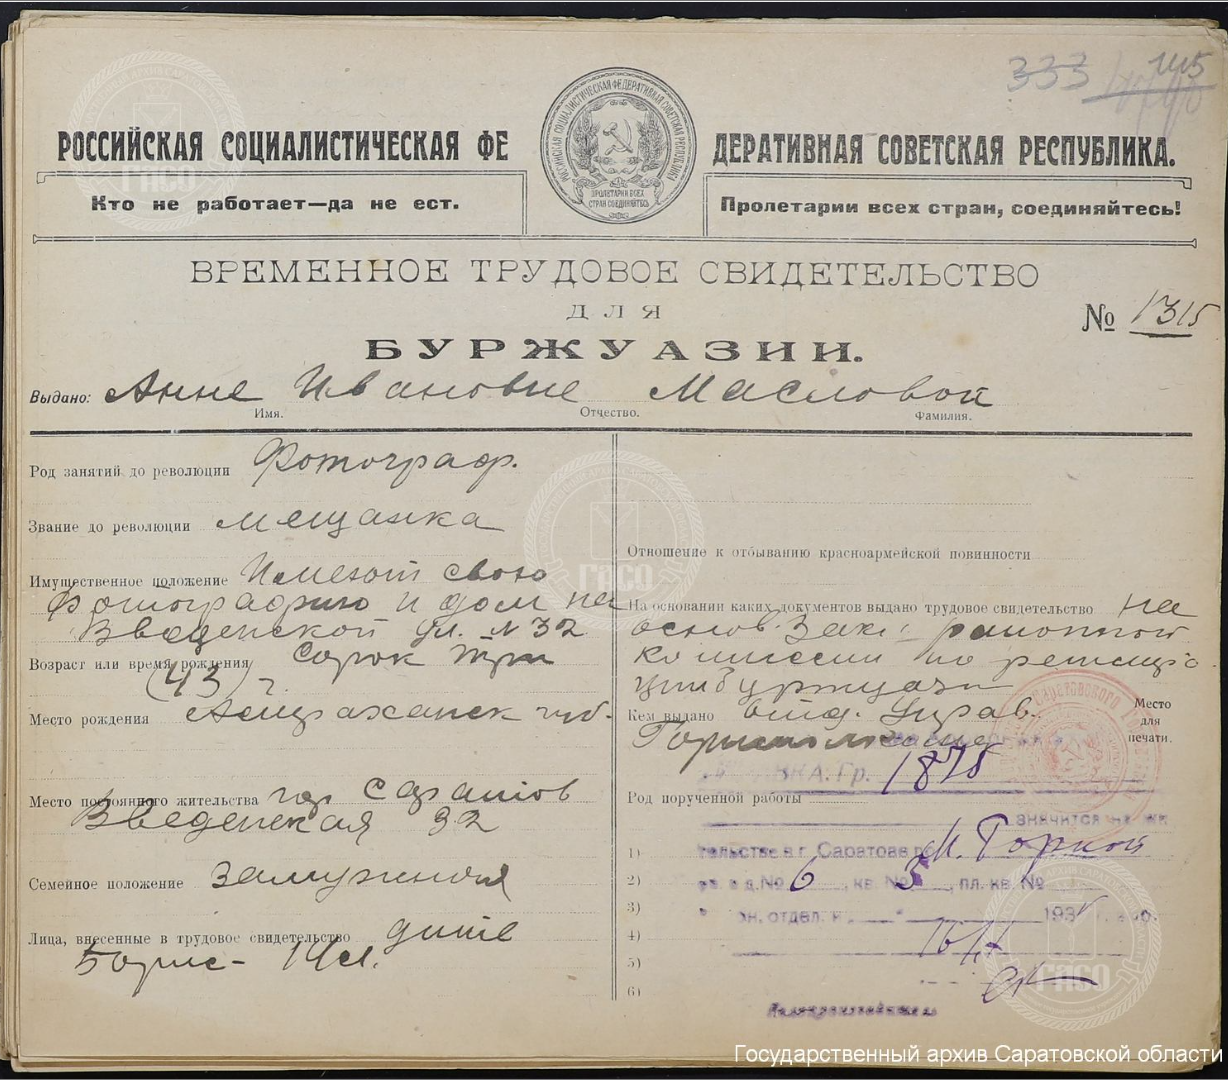 333
РОССИЙСКАЯ СОЦИАЛИСТИЧЕСКАЯ ФЕ ДЕРАТИВНАЯ СОВЕТСКАЯ РЕСПУБЛИКА.
РОССИЙСКАЯ СОЦИАЛИСТИЧЕСКАЯ ФЕДЕРАТИВНАЯ СОВЕТСКАЯ РЕСПУБЛИКА
ПРОЛЕТАРИИ ВСЕХ
СТРАН СОЕДИНЯЙТЕСЬ
Кто не работает—да не ест.
Пролетарии всех стран, соединяйтесь!
ВРЕМЕННОЕ ТРУДОВОЕ СВИДЕТЕЛЬСТВО
ДЛЯ
БУРЖУАЗИИ.
№ 1315
Выдано: Анне Ивановне Масловой
Имя. Отчество. Фамилия.
Род занятий до революции Фотограф.
Звание до революции мещанка
Имущественное положение Имеют свою
фотографию и дом на
Введенской ул. № 32
Возраст или время рождения сорок три
(43) г.
Место рождения Астраханск губ.
Место постоянного жительства гор Саратов
Введенская 32
Семейное положение замужняя
Лица, внесенные в трудовое свидетельство дите
Борис - 14 л.
Отношение к отбыванию красноармейской повинности
На основании каких документов выдано трудовое свидетельство на
основ. Зак. районной
комиссии по регистра
ции буржуази
Кем выдано отд. Управ.
Горисполкома
Место
для
печати.
Гр. 1878
Род порученной работы
значится
1) тельстве в г. Саратове по М. Горкой
2) д. № 6, кв. № 5, пл. кв. №
3) отдел. 193
4)
5)
6)
Делопроизводитель
ГАСО
ГАСО
ГАСО
Государственный архив Саратовской области